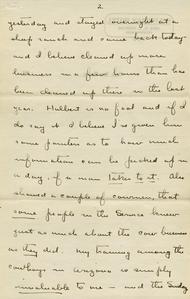 2.
yesterday and stayed overnight at a
sheep ranch and came back today
and I believe cleaned up more
business in a few hours than has
been cleaned up there in the last
year. Hulbert is no fool and if I
do say it I believe I've given him
some pointers as to how much
information can be picked up in
a day, if a man takes to it. Also
showed a couple of cowmen, that
some people in the Service knew
just as much about the cow business
as they did. My training among the
cowboys in Arizona is simply
invaluable to me – and the Sandy